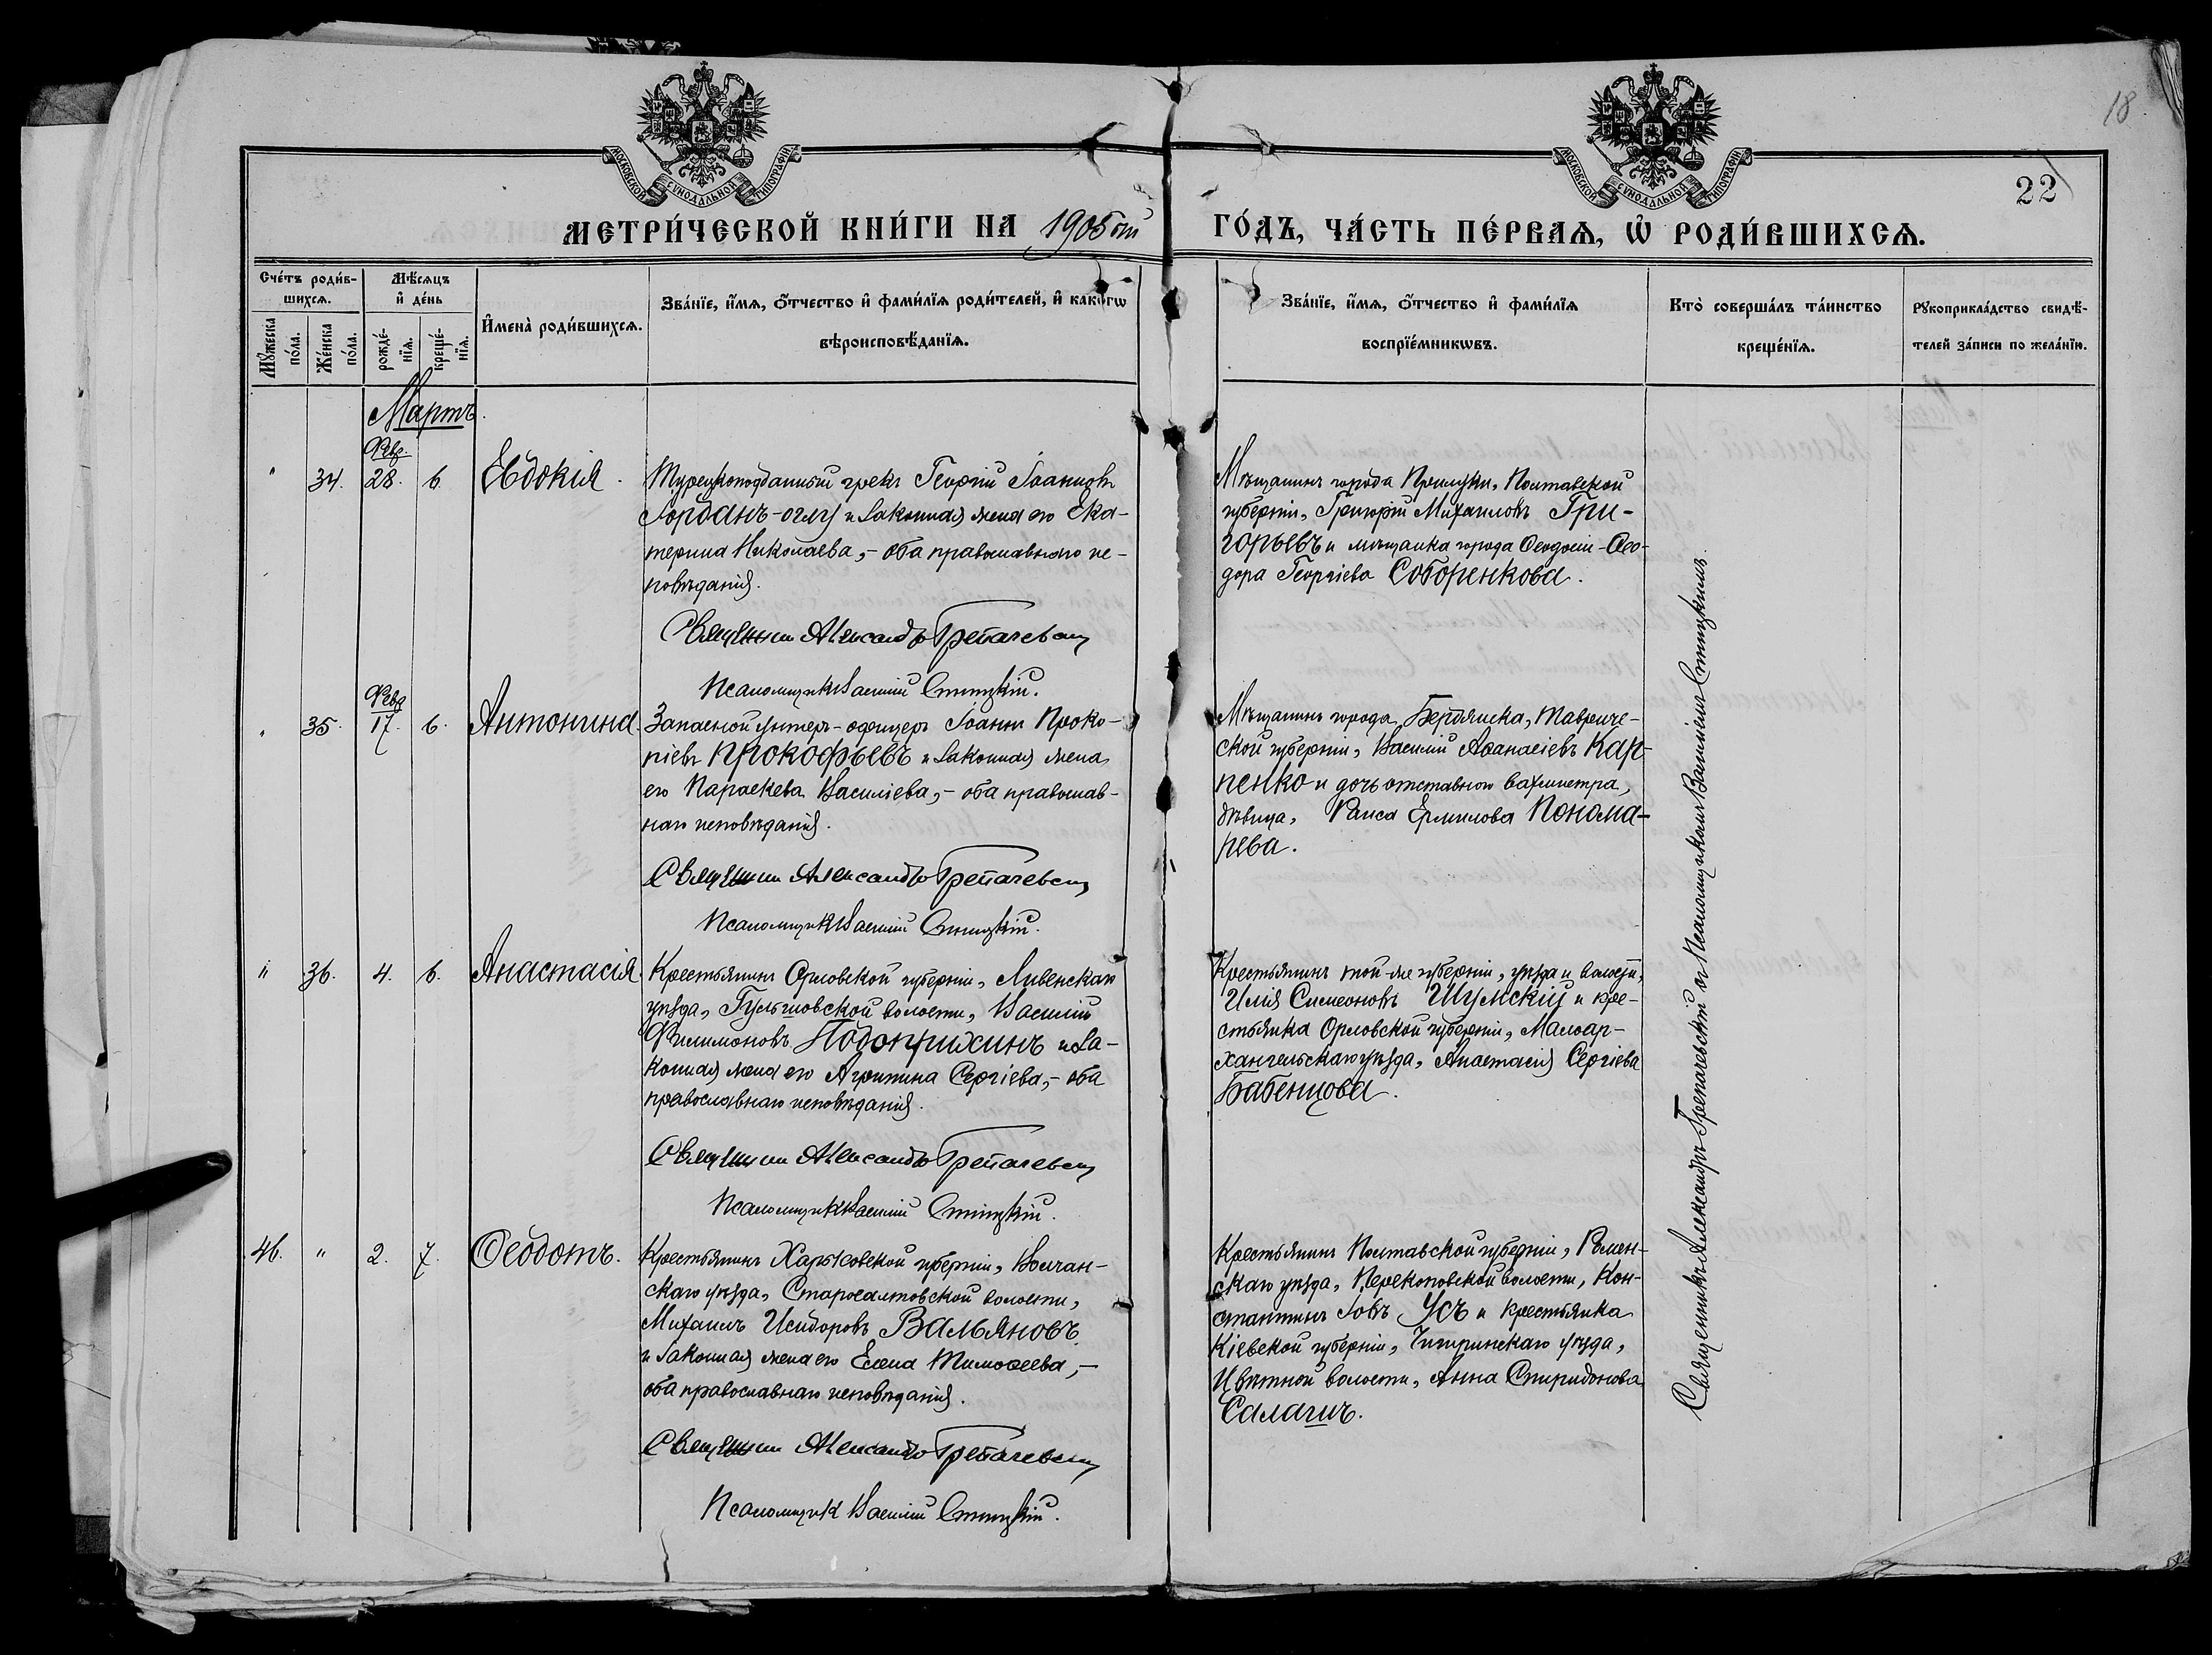 18.
22
МОСКОВСКОЙ СѴНОДАЛЬНОЙ ТИПОГРАФІИ
МОСКОВСКОЙ СѴНОДАЛЬНОЙ ТИПОГРАФІИ
МЕТРИ́ЧЕСКОЙ КНИ́ГИ НА 1905ый ГО́ДЪ, ЧА́СТЬ ПЕ́РВАѦ, Ѡ҆ РОДИ́ВШИХСѦ.
Сче́тъ роди́в-
шихсѧ.
Мꙋ́жеска по́ла.
Же́нска по́ла.
Мѣ́сѧцъ
и҆ де́нь
рожде́-
нїѧ.
креще́-
нїѧ.
И҆мена̀ роди́вшихсѧ.
Зва́нїе, и҆́мѧ, ѻ҆́тчество и҆ фами́лїѧ роди́телей, и҆ како́гѡ
вѣроисповѣ́данїѧ.
Зва́нїе, и҆́мѧ, ѻ҆́тчество и҆ фами́лїѧ
воспрїе́мникѡвъ.
Кто̀ соверша́лъ та́инство
креще́нїѧ.
Рꙋкоприкла́дство свидѣ́-
телей за́писи по жела́нїю.
Мартъ.
Февр.
" 34. 28. 6. Евдокія.
Турецкоподданный грекъ Георгій Іоанновъ
Іорданъ-оглу и законная жена его Ека-
терина Николаева,- оба православнаго ис-
повѣданія.
Священникъ Александръ Грепачевскій
Псаломщикъ Василій Стицкій.
Мѣщанинъ города Прилуки, Полтавской
губерніи, Григорій Михаиловъ Гри-
горьевъ и мѣщанка города Ѳеодосіи-Ѳео-
дора Георгіева Соборенкова.
Февр
" 35. 17. 6. Антонина.
Запасной унтеръ-офицеръ Іоаннъ Проко-
піевъ Прокофьевъ и законная жена
его Параскева Василіева,- оба православ-
наго исповѣданія.
Священникъ Александръ Грепачевскій
Псаломщикъ Василій Стицкій.
Мѣщанинъ города Бердянска, Тавриче-
ской губерніи, Василій Аѳанасіевъ Кар-
пенко и дочь отставного вахмистра,
дѣвица, Раиса Ермилова Понома-
рева.
" 36. 4. 6. Анастасія.
Крестьянинъ Орловской губерніи, Ливенскаго
уѣзда, Гультшовской волости, Василій
Филимоновъ Подоприхинъ и за-
конная жена его Агрипина Сергіева,- оба
православнаго исповѣданія.
Священникъ Александръ Грепачевскій
Псаломщикъ Василій Стицкій.
Крестьянинъ той-же губерніи, уѣзда и волости,
Илія Симеоновъ Шумскій и кре-
стьянка Орловской губерніи, Малоар-
хангельскаго уѣзда, Анастасія Сергіева
Бабенцова.
46. " 2. 7. Ѳеодотъ.
Крестьянинъ Харьковской губерніи, Волчан-
скаго уѣзда, Старосалтовской волости,
Михаилъ Исидоровъ Вальяновъ
и законная жена его Елена Тимоѳеева,-
оба православнаго исповѣданія.
Священникъ Александръ Грепачевскій
Псаломщикъ Василій Стицкій.
Крестьянинъ Полтавской губерніи, Ромен-
скаго уѣзда, Перекоповской волости, Кон-
стантинъ Іовъ Усъ и крестьянка
Кіевской губерніи, Чигиринскаго уѣзда,
Цвѣтной волости, Анна Спиридонова
Салагигъ.
Священникъ Александръ Грепачевскій съ Псаломщикомъ Василіемъ Стицкимъ.